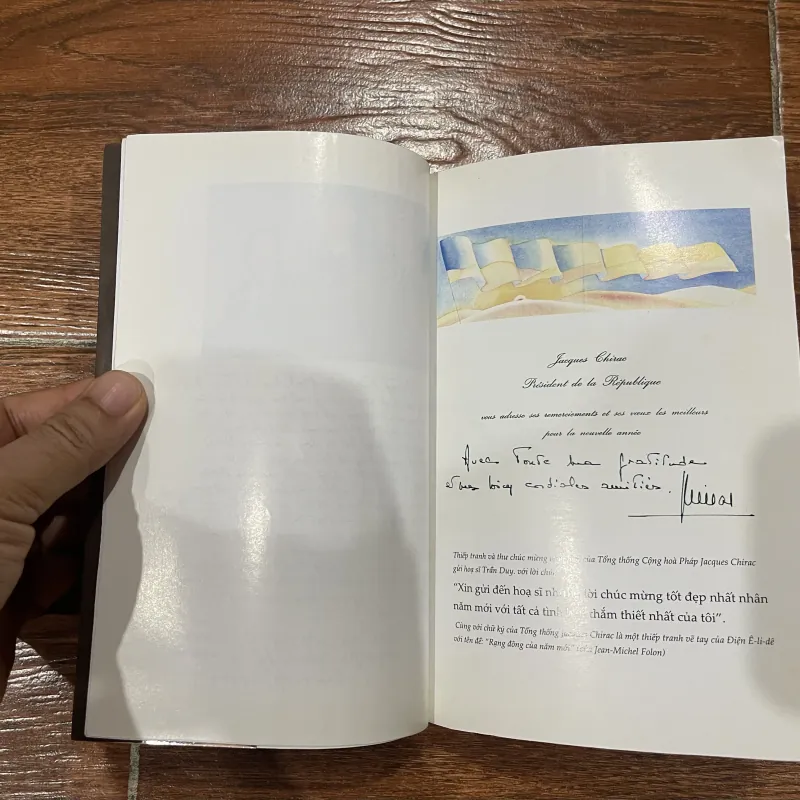 Jacques Chirac
Président de la République
vous adresse ses remerciements et ses vœux les meilleurs
pour la nouvelle année
Avec toute ma gratitude
et mes bien cordiales amitiés.
Thiếp tranh và thư chúc mừng của Tổng thống Cộng hoà Pháp Jacques Chirac
gửi hoạ sĩ Trần Duy, với lời
"Xin gửi đến hoạ sĩ lời chúc mừng tốt đẹp nhất nhân
năm mới với tất cả thắm thiết nhất của tôi".
Cùng với chữ ký của Tổng thống Jacques Chirac là một thiếp tranh vẽ tay của Điện Ê-li-dê
với tên đề: "Rạng đông của năm mới" Jean-Michel Folon)